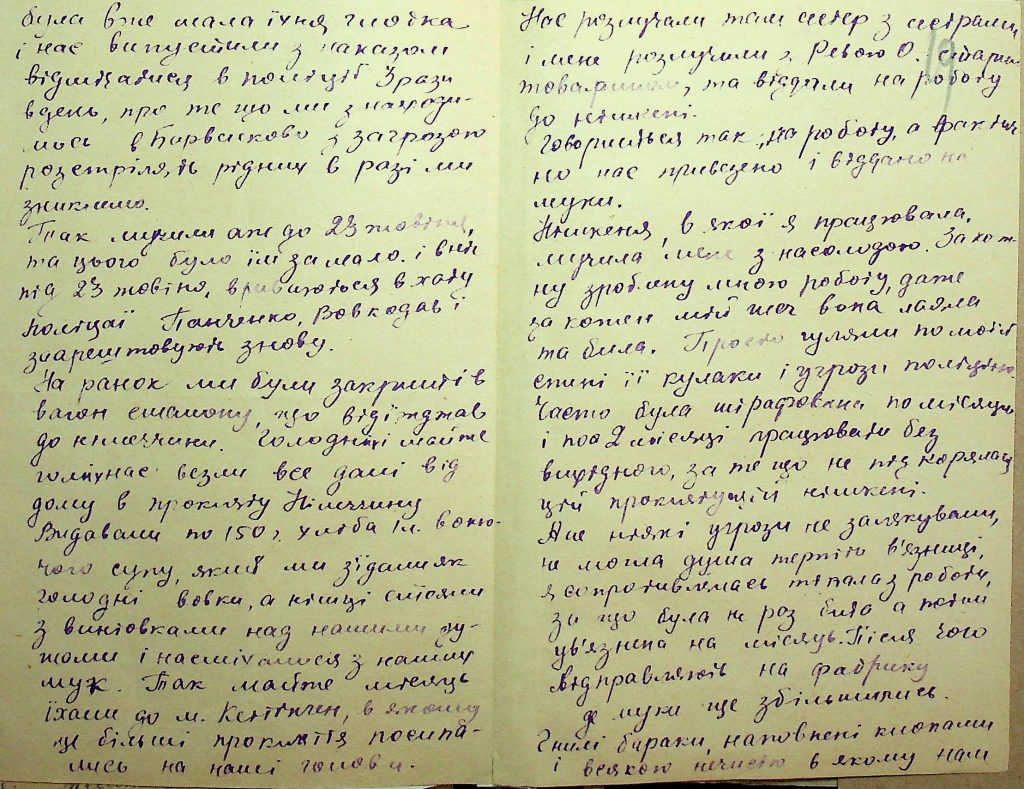 була вже мала їхня глотка
і нас випустили з наказом
відмічатися в поліції 3 рази
вдень, про те що ми знаходи-
мось в Барвінково з загрозою
розстрілять рідних в разі ми
зникнемо.
Так мучили аж до 23 жовтня,
та цього було їм за мало. і вніч
під 23 жовтня, вриваються в хату
поліцаї Панченко, Вовкодав і
заарештовують знову.
На ранок ми були закриті в
вагон ешалону, що відїжджав
до німеччини. Голодні і майже
голі нас везли все далі від
дому в прокляту Німеччину
Видавали по 150 г. хліба 1 л. воню-
чого супу, який ми зїдали як
голодні вовки, а німці стояли
з винтовками над нашими ду-
шами і насміхалися з наших
мук. Так майже місяць
їхали до м. в якому
ще більші прокляття посипа-
лись на наші голови.
Нас розлучали там сестер з сестрами
і мене розлучили з Ревою О. старим
товаришом, та віддали на роботу
до німкені.
Говориться так, на роботу, а фактич
но нас привезено і віддано на
муки.
Німкеня, в якої я працювала,
мучила мене з насолодою. За кож
ну зроблену мною роботу, даже
за кожен мій шаг вона лаяла
та била. Просто гуляли по моїй
спині її кулаки і угрози поліцією.
Часто була штрафована по місяцю
і по 2 місяці працювати без
вихідного, за те що не підкорялась
цій проклятущій німкені.
Але ніякі угрози не залякували,
не могла душа терпіти в'язниці,
я сопротивлялась тікала з роботи,
за що була не раз бита а потім
ув'язнена на місяць. Після чого
відправляють на фабрику
де муки ще збільшились.
Гнилі бараки, наповнені клопами
і всякою нечистю в якому нам
19